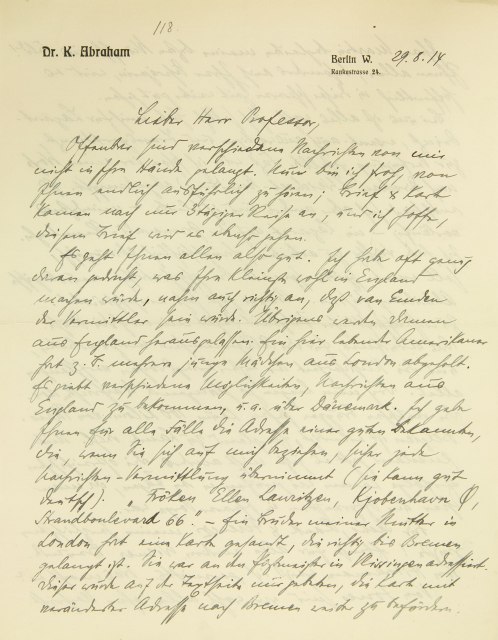 118
Dr. K. Abraham
Berlin W. 29.8.14
Rankestrasse 24.
Lieber Herr Professor,
Offenbar sind verschiedene Nachrichten von mir
nicht in Ihre Hände gelangt. Nun bin ich froh, von
Ihnen endlich ausführlich zu hören; Brief & Karte
kamen nach nur 3tägiger Reise an, und ich hoffe,
diesem Brief wird es ebenso gehen.
Es geht Ihnen allen also gut. Ich habe oft genug
daran gedacht, was Ihre Kleinste wohl in England
machen würde, nahm auch richtig an, daß van Emden
der Vermittler sein würde. Übrigens werden Damen
aus England herausgelassen. Ein hier lebender Amerikaner
hat z. T. mehrere junge Mädchen aus London abgeholt.
Es giebt verschiedene Möglichkeiten, Nachrichten aus
England zu bekommen, u. a. über Dänemark. Ich gebe
Ihnen für alle Fälle die Adresse einer guten Bekannten,
die, wenn Sie sich auf mich beziehen, sicher jede
Nachrichten-Vermittlung übernimmt (sie kann gut
deutsch): „Fröken Ellen Lauritzen, Kjobenhavn Ø,
Strandboulevard 66". – Ein Bruder meiner Mutter in
London hat eine Karte gesandt, die richtig bis Bremen
gelangt ist. Sie war an den Postmeister in Vlissingen adressiert.
Dieser wurde auf der Textseite nur gebeten, die Karte mit
veränderter Adresse nach Bremen weiter zu befördern.